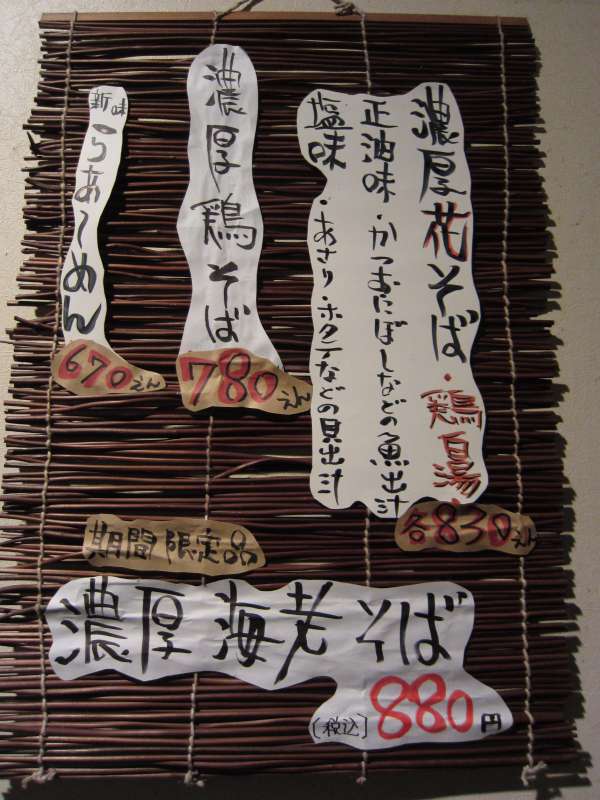 濃厚花そば・鶏白湯・
正油味・かつおにぼしなどの魚出汁
塩味・あさり・ホタテなどの貝出汁
各830えん
濃厚鶏そば
780えん
新味
らあ〜めん
670えん
期間限定品
濃厚海老そば
(税込)880円